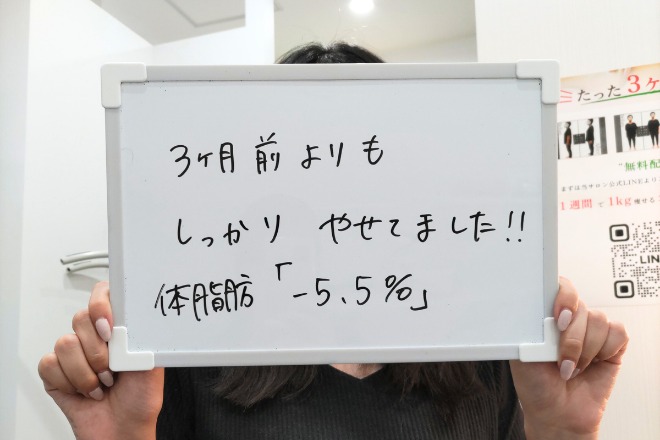 3ヶ月前よりも
しっかり やせてました!!
体脂肪「-5.5%」
たった3ヶ
"無料配
まずは当サロン公式LINEより
1週間で1kg痩せる
LIN